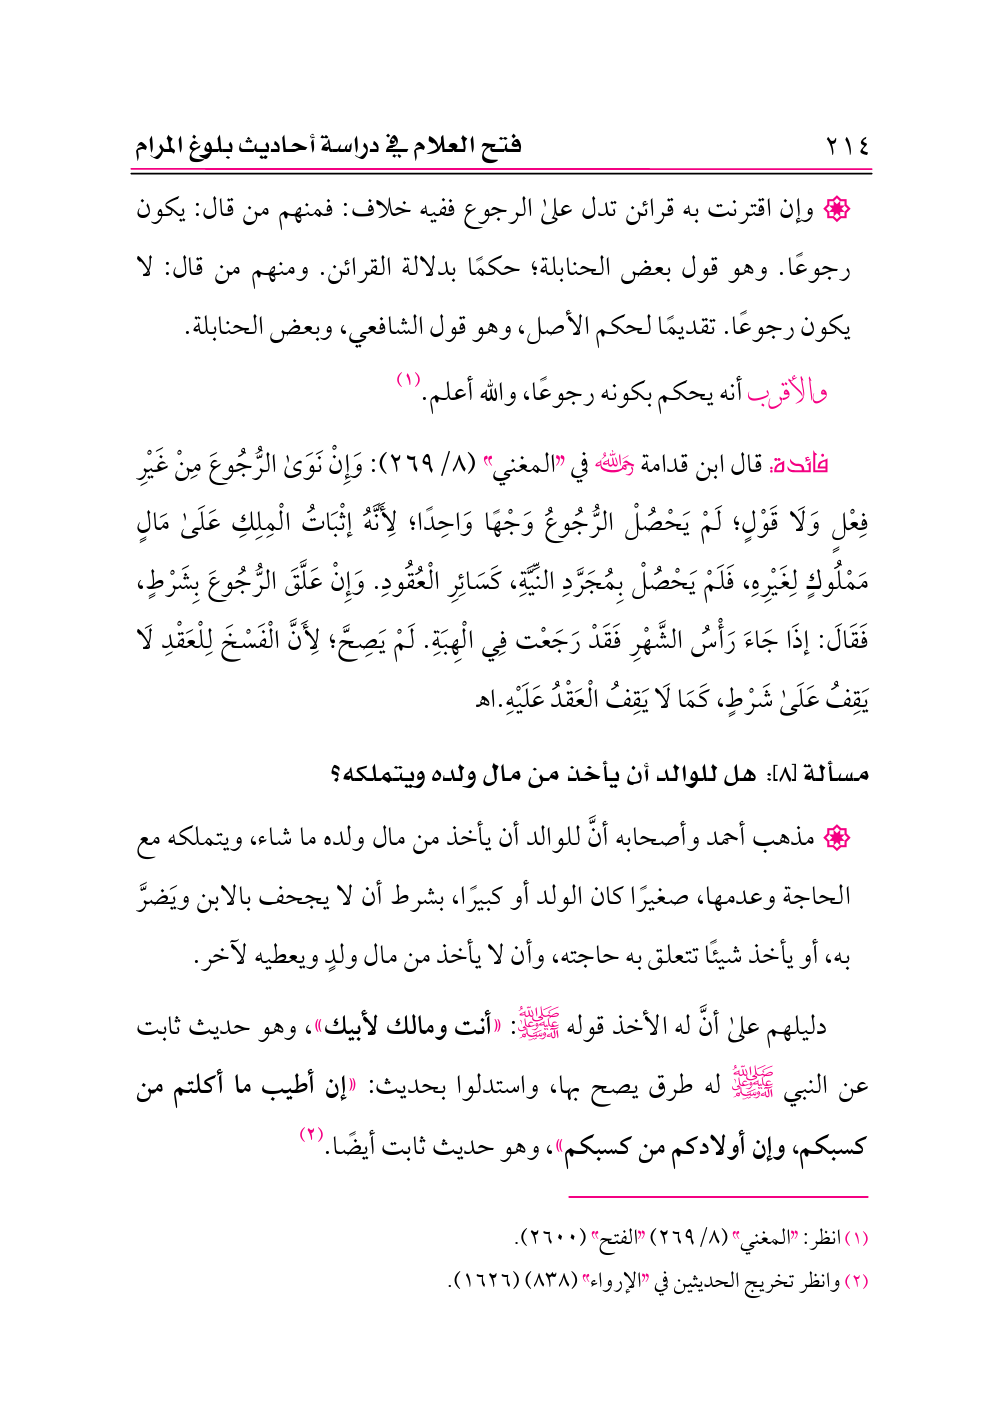 ٢١٤ فتح العلام في دراسة أحاديث بلوغ المرام
وإن اقترنت به قرائن تدل علىٰ الرجوع ففيه خلاف: فمنهم من قال: يكون
رجوعًا. وهو قول بعض الحنابلة؛ حكمًا بدلالة القرائن. ومنهم من قال: لا
يكون رجوعًا. تقديمًا لحكم الأصل، وهو قول الشافعي، وبعض الحنابلة.
والأقرب أنه يحكم بكونه رجوعًا، والله أعلم.(١)
فائدة: قال ابن قدامة رحمه الله في "المغني" (٨/ ٢٦٩): وَإِنْ نَوَىٰ الرُّجُوعَ مِنْ غَيْرِ
فِعْلٍ وَلَا قَوْلٍ؛ لَمْ يَحْصُلْ الرُّجُوعُ وَجْهًا وَاحِدًا؛ لِأَنَّهُ إثْبَاتُ الْمِلِكِ عَلَىٰ مَالٍ
مَمْلُوكٍ لِغَيْرِهِ، فَلَمْ يَحْصُلْ بِمُجَرَّدِ النِّيَّةِ، كَسَائِرِ الْعُقُودِ. وَإِنْ عَلَّقَ الرُّجُوعَ بِشَرْطٍ،
فَقَالَ: إذَا جَاءَ رَأْسُ الشَّهْرِ فَقَدْ رَجَعْت فِي الْهِبَةِ. لَمْ يَصِحَّ؛ لِأَنَّ الْفَسْخَ لِلْعَقْدِ لَا
يَقِفُ عَلَىٰ شَرْطٍ، كَمَا لَا يَقِفُ الْعَقْدُ عَلَيْهِ.اهـ
مسألة [٨]: هل للوالد أن يأخذ من مال ولده ويتملكه؟
مذهب أحمد وأصحابه أنَّ للوالد أن يأخذ من مال ولده ما شاء، ويتملكه مع
الحاجة وعدمها، صغيرًا كان الولد أو كبيرًا، بشرط أن لا يجحف بالابن ويَضرَّ
به، أو يأخذ شيئًا تتعلق به حاجته، وأن لا يأخذ من مال ولدٍ ويعطيه لآخر.
دليلهم علىٰ أنَّ له الأخذ قوله ﷺ: «أنت ومالك لأبيك»، وهو حديث ثابت
عن النبي ﷺ له طرق يصح بها، واستدلوا بحديث: «إن أطيب ما أكلتم من
كسبكم، وإن أولادكم من كسبكم»، وهو حديث ثابت أيضًا.(٢)
(١) انظر: "المغني" (٨/ ٢٦٩) "الفتح" (٢٦٠٠).
(٢) وانظر تخريج الحديثين في "الإرواء" (٨٣٨) (١٦٢٦).